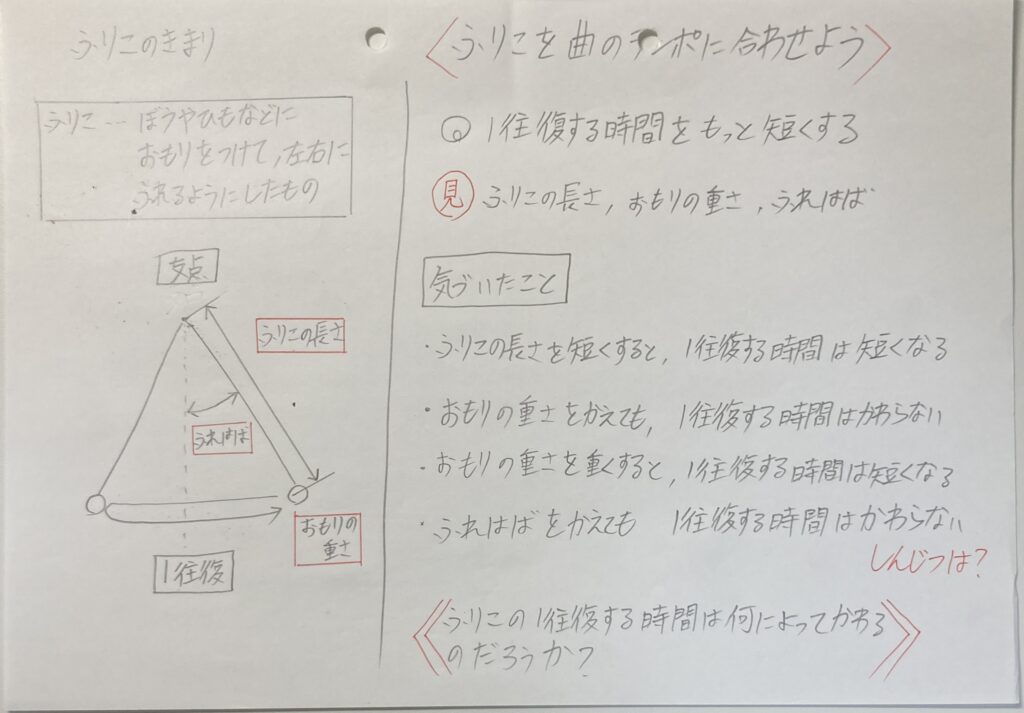 ふりこのきまり
ふりこ… ぼうやひもなどに
おもりをつけて,左右に
ふれるようにしたもの
支点
ふりこの長さ
ふれはば
おもりの
重さ
1往復
ふりこを曲のテンポに合わせよう
1往復する時間をもっと短くする
見 ふりこの長さ,おもりの重さ,ふれはば
気づいたこと
・ふりこの長さを短くすると,1往復する時間は短くなる
・おもりの重さをかえても,1往復する時間はかわらない
・おもりの重さを重くすると,1往復する時間は短くなる
・ふれはばをかえても 1往復する時間はかわらない
しんじつは?
ふりこの1往復する時間は何によってかわる
のだろうか?